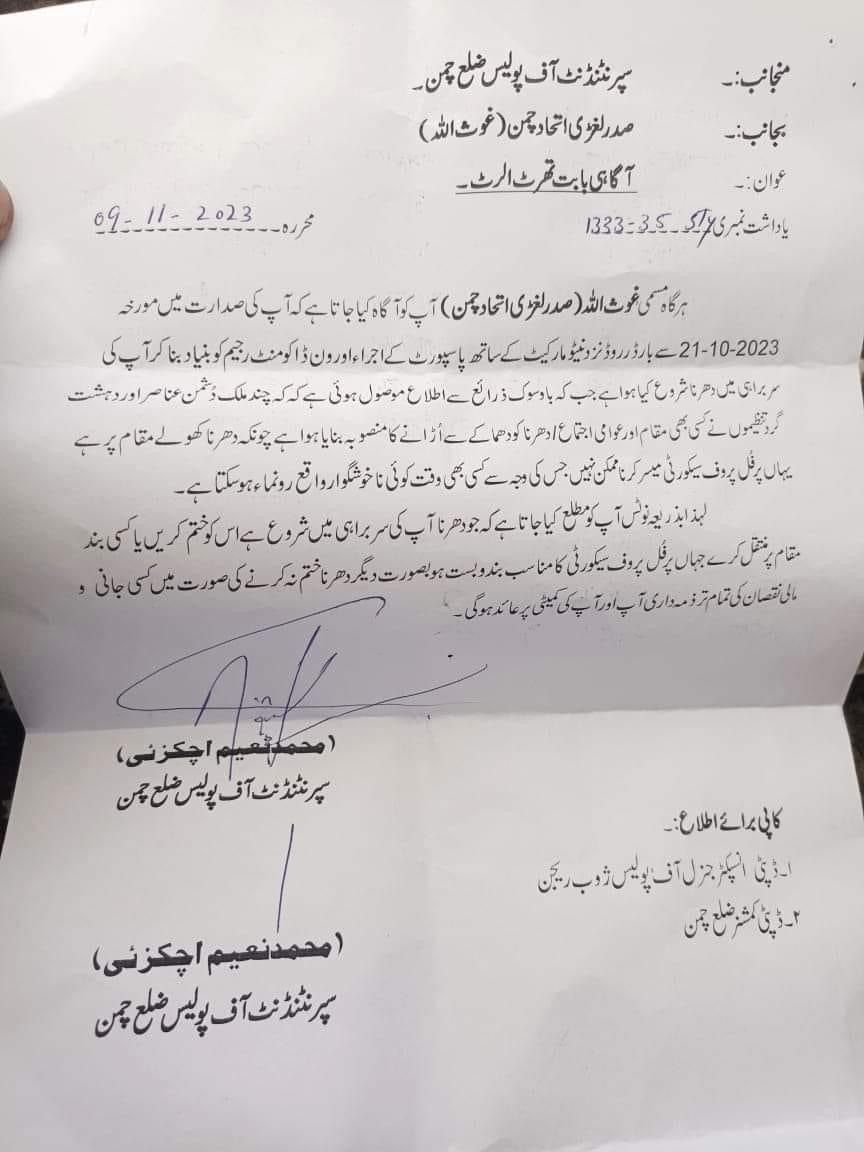 منجانب:۔ سپرنٹنڈنٹ آف پولیس ضلع چمن۔
بجانب:۔ صدر لغڑی اتحاد چمن (غوث اللہ)
عنوان:۔ آگاہی بابت تھرٹ الرٹ۔
یاداشت نمبری 1333-35 محررہ 09-11-2023
ہرگاہ مسمی غوث اللہ (صدر لغڑی اتحاد چمن) آپ کو آگاہ کیا جاتا ہے کہ آپ کی صدارت میں مورخہ
21-10-2023 سے بارڈر روڈ نزد نیٹو مارکیٹ کے ساتھ پاسپورٹ کے اجراء اور ون ڈاکومنٹ رجیم کو بنیاد بنا کر آپ کی
سربراہی میں دھرنا شروع کیا ہوا ہے جب کہ باوسوک ذرائع سے اطلاع موصول ہوئی ہے کہ کہ چند ملک دشمن عناصر اور دہشت
گرد تنظیموں نے کسی بھی مقام اور عوامی اجتماع / دھرنا کو دھماکے سے اُڑانے کا منصوبہ بنایا ہوا ہے چونکہ دھرنا کھولے مقام پر ہے
یہاں پر فُل پروف سیکورٹی میسر کرنا ممکن نہیں جس کی وجہ سے کسی بھی وقت کوئی ناخوشگوار واقع رونماء ہو سکتا ہے۔
لہذا بذریعہ نوٹس آپ کو مطلع کیا جاتا ہے کہ جو دھرنا آپ کی سربراہی میں شروع ہے اس کو ختم کریں یا کسی بند
مقام پر منتقل کرے جہاں پر فُل پروف سیکورٹی کا مناسب بندوبست ہو بصورت دیگر دھرنا ختم نہ کرنے کی صورت میں کسی جانی و
مالی نقصان کی تمام تر ذمہ داری آپ اور آپ کی کمیٹی پر عائد ہوگی۔
(محمد نعیم اچکزئی)
سپرنٹنڈنٹ آف پولیس ضلع چمن
کاپی برائے اطلاع:۔
۱۔ ڈپٹی انسپکٹر جنرل آف پولیس ژوب ریجن
۲۔ ڈپٹی کمشنر ضلع چمن
(محمد نعیم اچکزئی)
سپرنٹنڈنٹ آف پولیس ضلع چمن